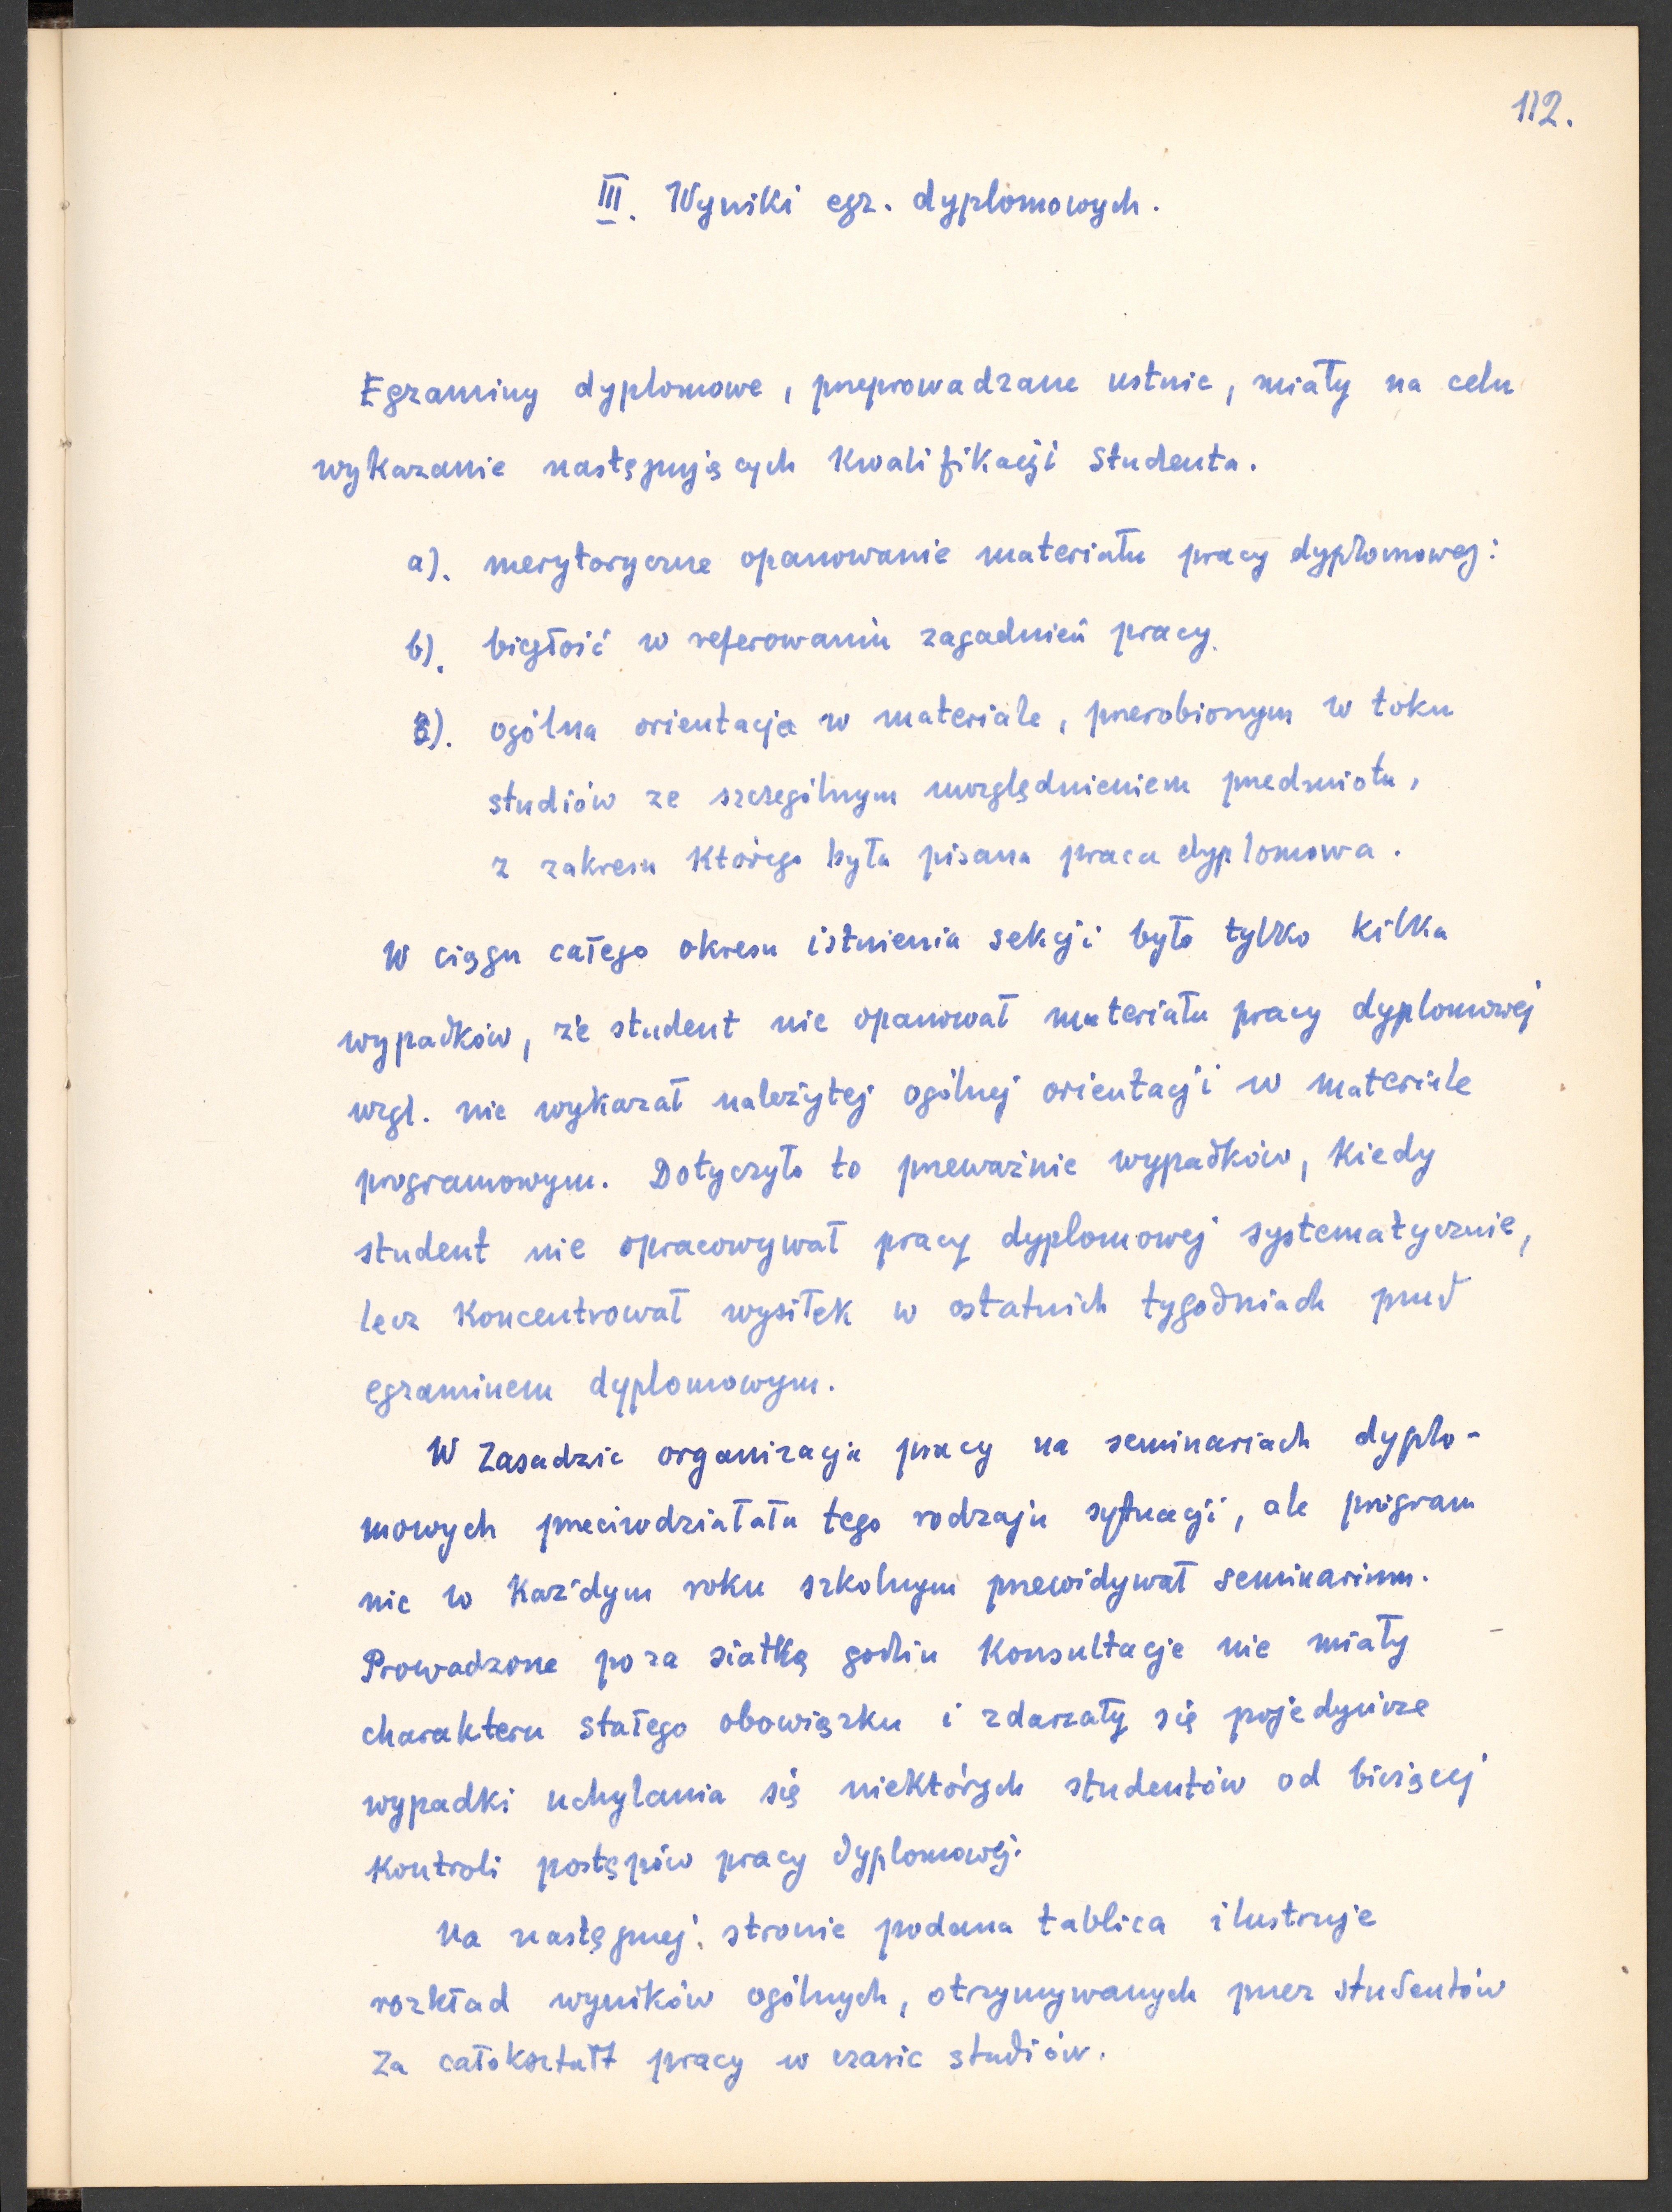 112.
III. Wyniki egz. dyplomowych.
Egzaminy dyplomowe, przeprowadzane ustnie, miały na celu
wykazanie następujących kwalifikacji studenta.
a). merytoryczne opanowanie materiału pracy dyplomowej:
b). biegłość w referowaniu zagadnień pracy.
c). ogólna orientacja w materiale, przerobionym w toku
studiów ze szczególnym uwzględnieniem przedmiotu,
z zakresu którego była pisana praca dyplomowa.
W ciągu całego okresu istnienia sekcji było tylko kilka
wypadków, że student nie opanował materiału pracy dyplomowej
wzgl. nie wykazał należytej ogólnej orientacji w materiale
programowym. Dotyczyło to przeważnie wypadków, kiedy
student nie opracowywał pracy dyplomowej systematycznie,
lecz koncentrował wysiłek w ostatnich tygodniach przed
egzaminem dyplomowym.
W zasadzie organizacja pracy na seminariach dyplo-
mowych przeciwdziałała tego rodzaju sytuacji, ale program
nie w każdym roku szkolnym przewidywał seminarium.
Prowadzone poza siatką godzin konsultacje nie miały
charakteru stałego obowiązku i zdarzały się pojedyńcze
wypadki uchylania się niektórych studentów od bieżącej
kontroli postępów pracy dyplomowej.
Na następnej stronie podana tablica ilustruje
rozkład wyników ogólnych, otrzymywanych przez studentów
za całokształt pracy w czasie studiów.